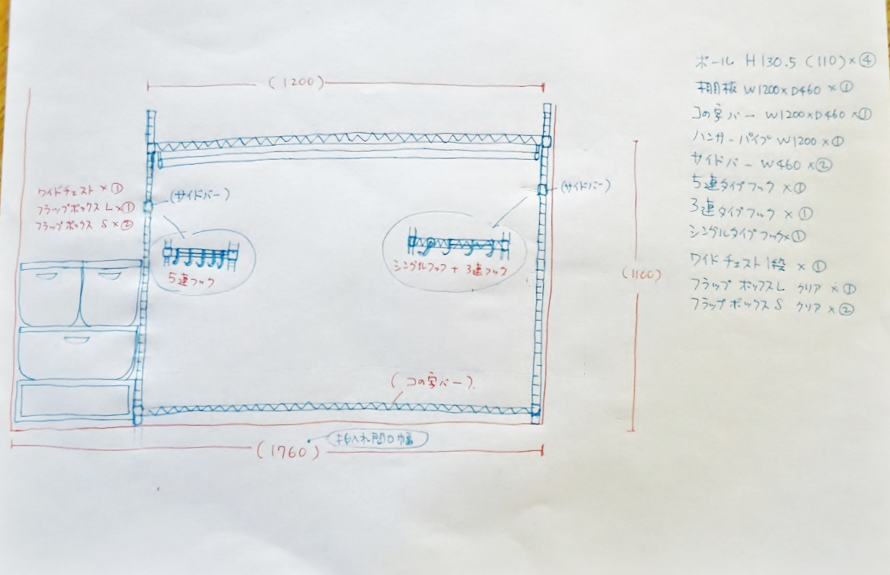 (1200)
ポール H130.5 (110)×④
棚板 W1200×D460 ×①
コの字バー W1200×D460×①
ハンガーパイプ W1200×①
サイドバー W460×②
5連タイプフック×①
3連タイプフック×①
シングルタイプフック×①
ワイドチェスト1段×①
フラップボックスL クリア×①
フラップボックスS クリア×②
ワイドチェスト×①
フラップボックスL×①
フラップボックスS×②
(サイドバー)
(サイドバー)
5連フック
シングルフック+3連フック
(1100)
(コの字バー)
(1760)
押入れ間口幅